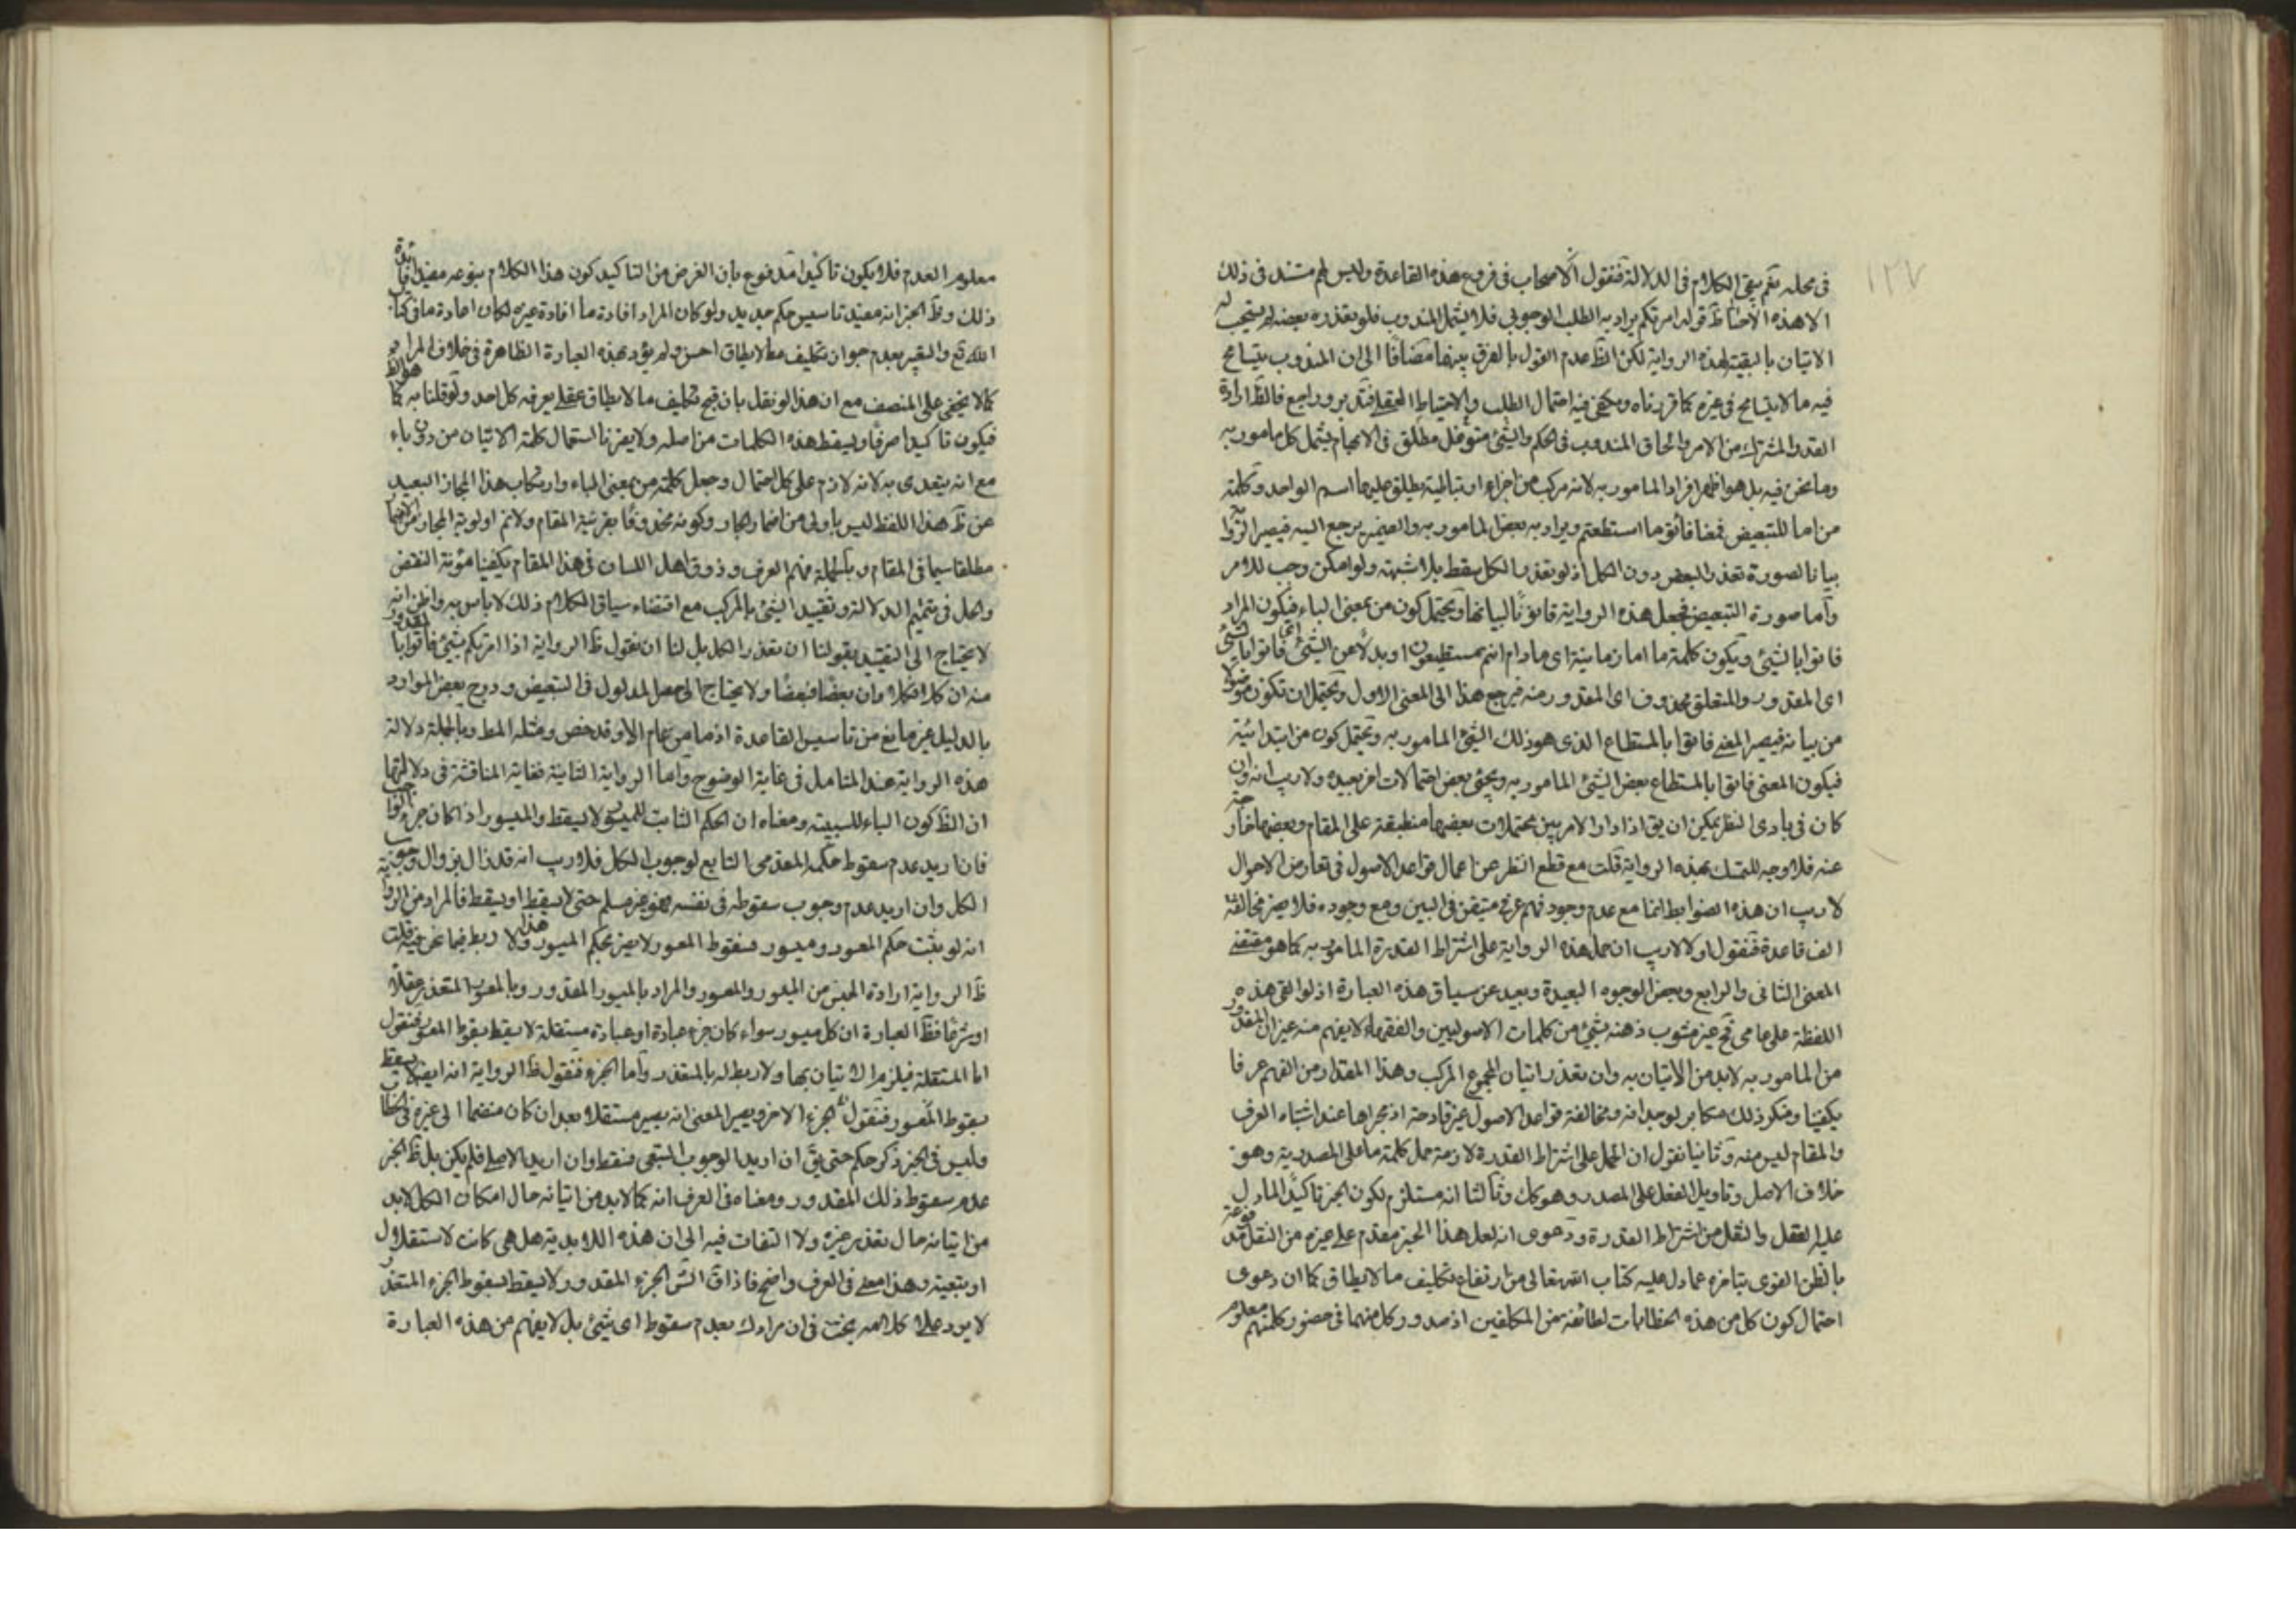 ١٢٧
في محله نعم يبقى الكلام في الدلالة فنقول الاصحاب في فروع هذه القاعدة وليس لهم مستند في ذلك
الا هذه قوله امرتكم يراد به الطلب الوجوبي فلا يشمل المندوب فلو تعذر بعضه لم يستحب له
الاتيان بالبقية لهذه الرواية لكن الظ عدم القول بالفرق بينهما مضافا الى ان المندوب يتسامح
فيه ما لا يتسامح في غيره كما قررناه ويكفي فيه احتمال الطلب والاحتياط العقلي فتدبر وراجع فالظ ارادة
القدر المشترك من الامر والحاق المندوب في الحكم والشئ متوغل مطلق في الابهام يشمل كل مامور به
وما نحن فيه بل هو اظهر افراد المامور به لانه مركب من اجزاء يطلق عليها اسم الواحد وكلمة
من اما للتبعيض فمعنا فأتوا ما استطعتم ويراد به بعض المامور به والضمير يرجع اليه فيصير
بيانا لصورة تعذر البعض دون الكل اذ لو تعذر الكل سقط بلا شبهة ولو امكن وجب للامر
واما صورة التبعيض فجعل هذه الرواية قانونا لبيانها ويحتمل كون من بمعنى الباء فيكون المراد
فاتوا بالشئ ويكون كلمة ما اما زمانية اى ما دام انتم مستطيعون او بدلا عن الشئ فاتوا
اى المقدور والمتعلق محذوف اى المقدور منه فيرجع هذا الى المعنى الاول ويحتمل ان تكون
من بيانه فيصير المعنى فاتوا بالمستطاع الذى هو ذلك الشئ المامور به ويحتمل كون من ابتدائية
فيكون المعنى فاتوا بالمستطاع بعض الشئ المامور به ويجئ بعض احتمالات اخر بعيده ولا ريب انه وان
كان في بادى النظر يمكن ان يق اذا دار الامر بين محتملات بعضها منطبقة على المقام وبعضها خارجة
عنه فلا وجه للتمسك بهذه الرواية قلت مع قطع النظر عن اعمال قواعد الاصول في تعارض الاحوال
لا ريب ان هذه الضوابط انما مع عدم وجود فهم عرفى متيقن في البين ومع وجوده فلا يضر مخالفة
الف قاعدة فنقول اولا لا ريب ان حمل هذه الرواية على اشتراط القدرة المامور به كما هو مقتضى
المعنى الثاني والرابع وبعض الوجوه البعيدة وبعيد عن سياق هذه العبارة اذ لو القى هذه
اللفظة على عامى قح غير مشوب ذهنه بشئ من كلمات الاصوليين والفقهاء لا يفهم منه غير ان المقدور
من المامور به لا بد من الاتيان به وان تعذر اتيان المجموع المركب وهذا المقدار من الفهم عرفا
يكفينا ومنكر ذلك مكابر لوجدانه ومخالفة قواعد الاصول غير قادحة اذ مجراها عند اشتباه العرف
والمقام ليس منه وثانيا نقول ان الحمل على اشتراط القدرة لازمة حمل كلمة ما على المصدرية وهو
خلاف الاصل وتاويل الفعل على المصدر وهو كك وثالثا انه مستلزم لكون الخبر تاكيدا لما دل
عليه العقل والنقل من اشتراط القدرة ودعوى انه لعل هذا الخبر مقدم على غيره من النقل مدفوعة
بالظن القوى بتاخره عما دل عليه كتاب الله تعالى من ارتفاع تكليف ما لا يطاق كما ان دعوى
احتمال كون كل من هذه الخطابات لطائفة من المكلفين اذ صدور كل منهما في حضور كلهم معلوم
معلوم العدم فلا يكون تاكيدا مدفوع بان الغرض من التاكيد كون هذا الكلام بنوعه مفيدا فائدة
ذلك وظ الخبر انه مفيد تاسيس حكم جديد ولو كان المراد افادة ما افادة غيره لكان اعادة ما في كتاب
الله تع والتعبير بعدم جواز تكليف ما لا يطاق احسن ولم يؤد بهذه العبارة الظاهرة في خلاف المراد
كما لا يخفى على المنصف مع ان هذا لو نقل بان قبح تكليف ما لا يطاق عقلي يعرفه كل احد ولو قلنا به كما هو الظ
فيكون تاكيدا صرفا ويسقط هذه الكلمات من اصله ولا يضرنا استعمال كلمة الاتيان من دون باء
مع انه يتعدى به لانه لازم على كل احتمال وجعل كلمة من بمعنى الباء وارتكاب هذا المجاز البعيد
عن ظ هذا اللفظ ليس باولى من اضمار الجار وكونه محذوفا بقرينة المقام ولا نم اولوية المجاز
مطلقا سيما في المقام وبالجملة فهم العرف وذوق اهل اللسان في هذا المقام يكفينا مؤنة النقض
والحل في تتميم الدلالة وتقييد الشئ بالمركب مع اقتضاء سياق الكلام ذلك لا باس به واظن انه
لا يحتاج الى التقييد بقولنا ان تعذر الكل بل لنا ان نقول ظ الرواية اذا امرتكم بشئ فاتوا بالمقدور
منه ان كلا فكلا وان بعضا فبعضا ولا يحتاج الى جعل المدلول في التبعيض وخروج بعض الموارد
بالدليل غير مانع من تاسيس القاعدة اذ ما من عام الا وقد خص ومثله المط وبالجملة دلالة
هذه الرواية عند المتامل في غاية الوضوح واما الرواية الثانية فغاية المناقشة في دلالتها
ان الظ كون الباء للسببية ومعناه ان الحكم الثابت للميسور لا يسقط والميسور اذا كان جزء الواجب
فان اريد عدم سقوط حكمه المقدمى التابع لوجوب الكل فلا ريب انه قد زال بزوال وجوب
الكل وان اريد عدم وجوب سقوطه في نفسه فهو غير مسلم حتى لا يسقط او يسقط فالمراد من الرواية
انه لو ثبت حكم المعسور وميسور فسقوط المعسور لا يضر بحكم الميسور ولا ربط هذا فيما نحن فيه قلت
ظ الرواية ارادة الجنس من الميسور والمعسور والمراد بالميسور المقدور وبالمعسور المتعذر عقلا
او شرعا فظ العبارة ان كل ميسور سواء كان جزء عبادة او عبادة مستقلة لا يسقط بسقوط المعسور فنقول
اما المستقلة فيلزم الاتيان بها ولا ربط له بالمتعذر واما الجزء فنقول ظ الرواية انه ايضا لا يسقط
بسقوط المعسور فنقول الجزء الاخر ويصير المعنى انه يصير مستقلا بعد ان كان منضما الى غيره في الخطاب
وليس في الخبر ذكر حكم حتى يق ان اريد الوجوب التبعى فسقط وان اريد الاصلى فلم يكن بل ظ الخبر
عدم سقوط ذلك المقدور ومعناه في العرف انه كما لا بد من اتيانه حال امكان الكل لا بد
من اتيانه حال تعذر غيره ولا التفات فيه الى ان هذه اللابدية هل هي كانت لاستقلال
او بتبعية وهذا معنى في العرف واضح فاذا ق الش الجزء المقدور لا يسقط بسقوط الجزء المتعذر
لا يورد على كلامه بحث في ان مرادك بعدم سقوط اى شئ بل لا يفهم من هذه العبارة